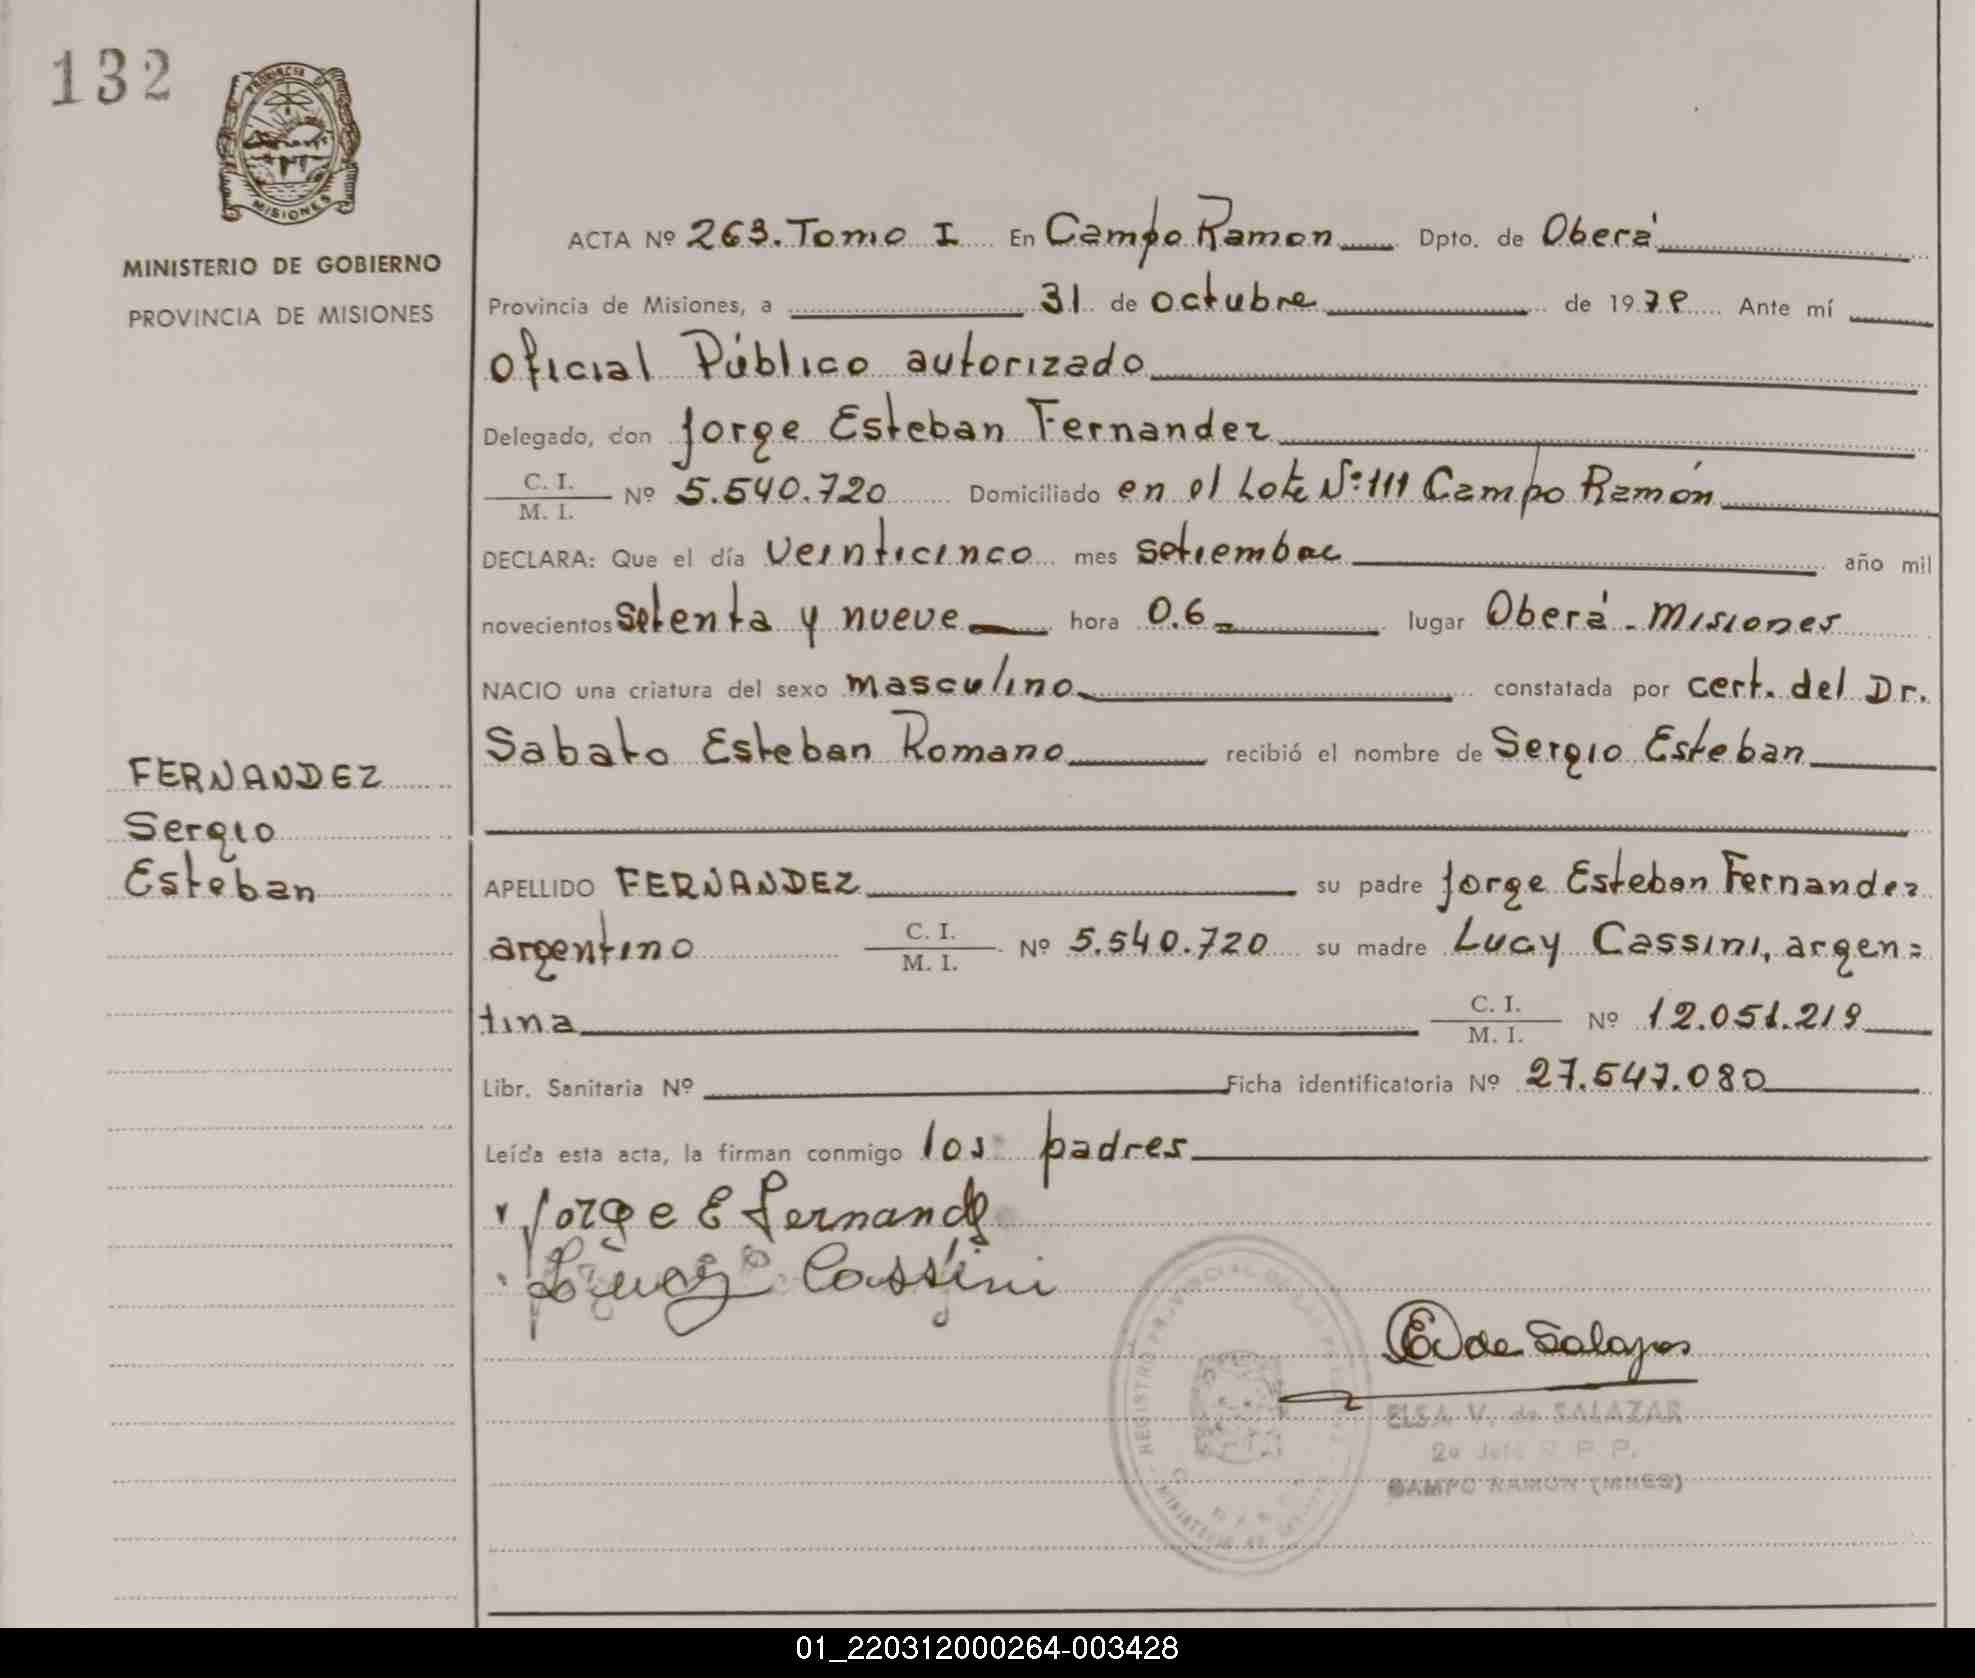 132
PROVINCIA DE
MISIONES
MINISTERIO DE GOBIERNO
PROVINCIA DE MISIONES
ACTA Nº 263. Tomo I En Campo Ramon Dpto. de Oberá
Provincia de Misiones, a 31 de octubre de 1979 Ante mí
Oficial Público autorizado
Delegado, don Jorge Esteban Fernandez
C. I.
M. I. Nº 5.540.720 Domiciliado en el Lote Nº 111 Campo Ramón
DECLARA: Que el día veinticinco mes setiembre año mil
novecientos setenta y nueve hora 0.6 lugar Oberá - Misiones
NACIO una criatura del sexo masculino constatada por cert. del Dr.
Sabato Esteban Romano recibió el nombre de Sergio Esteban
FERNANDEZ
Sergio
Esteban
APELLIDO FERNANDEZ su padre Jorge Esteban Fernandez
argentino C. I.
M. I. Nº 5.540.720 su madre Lucy Cassini, argen=
tina C. I.
M. I. Nº 12.051.219
Libr. Sanitaria Nº Ficha identificatoria Nº 27.547.080
Leída esta acta, la firman conmigo los padres
Jorge E Fernandez
Lucy Cassini
E de Salazar
ELSA V. de SALAZAR
2a Jefe R. P. P.
CAMPO RAMON (MNES)
01_220312000264-003428